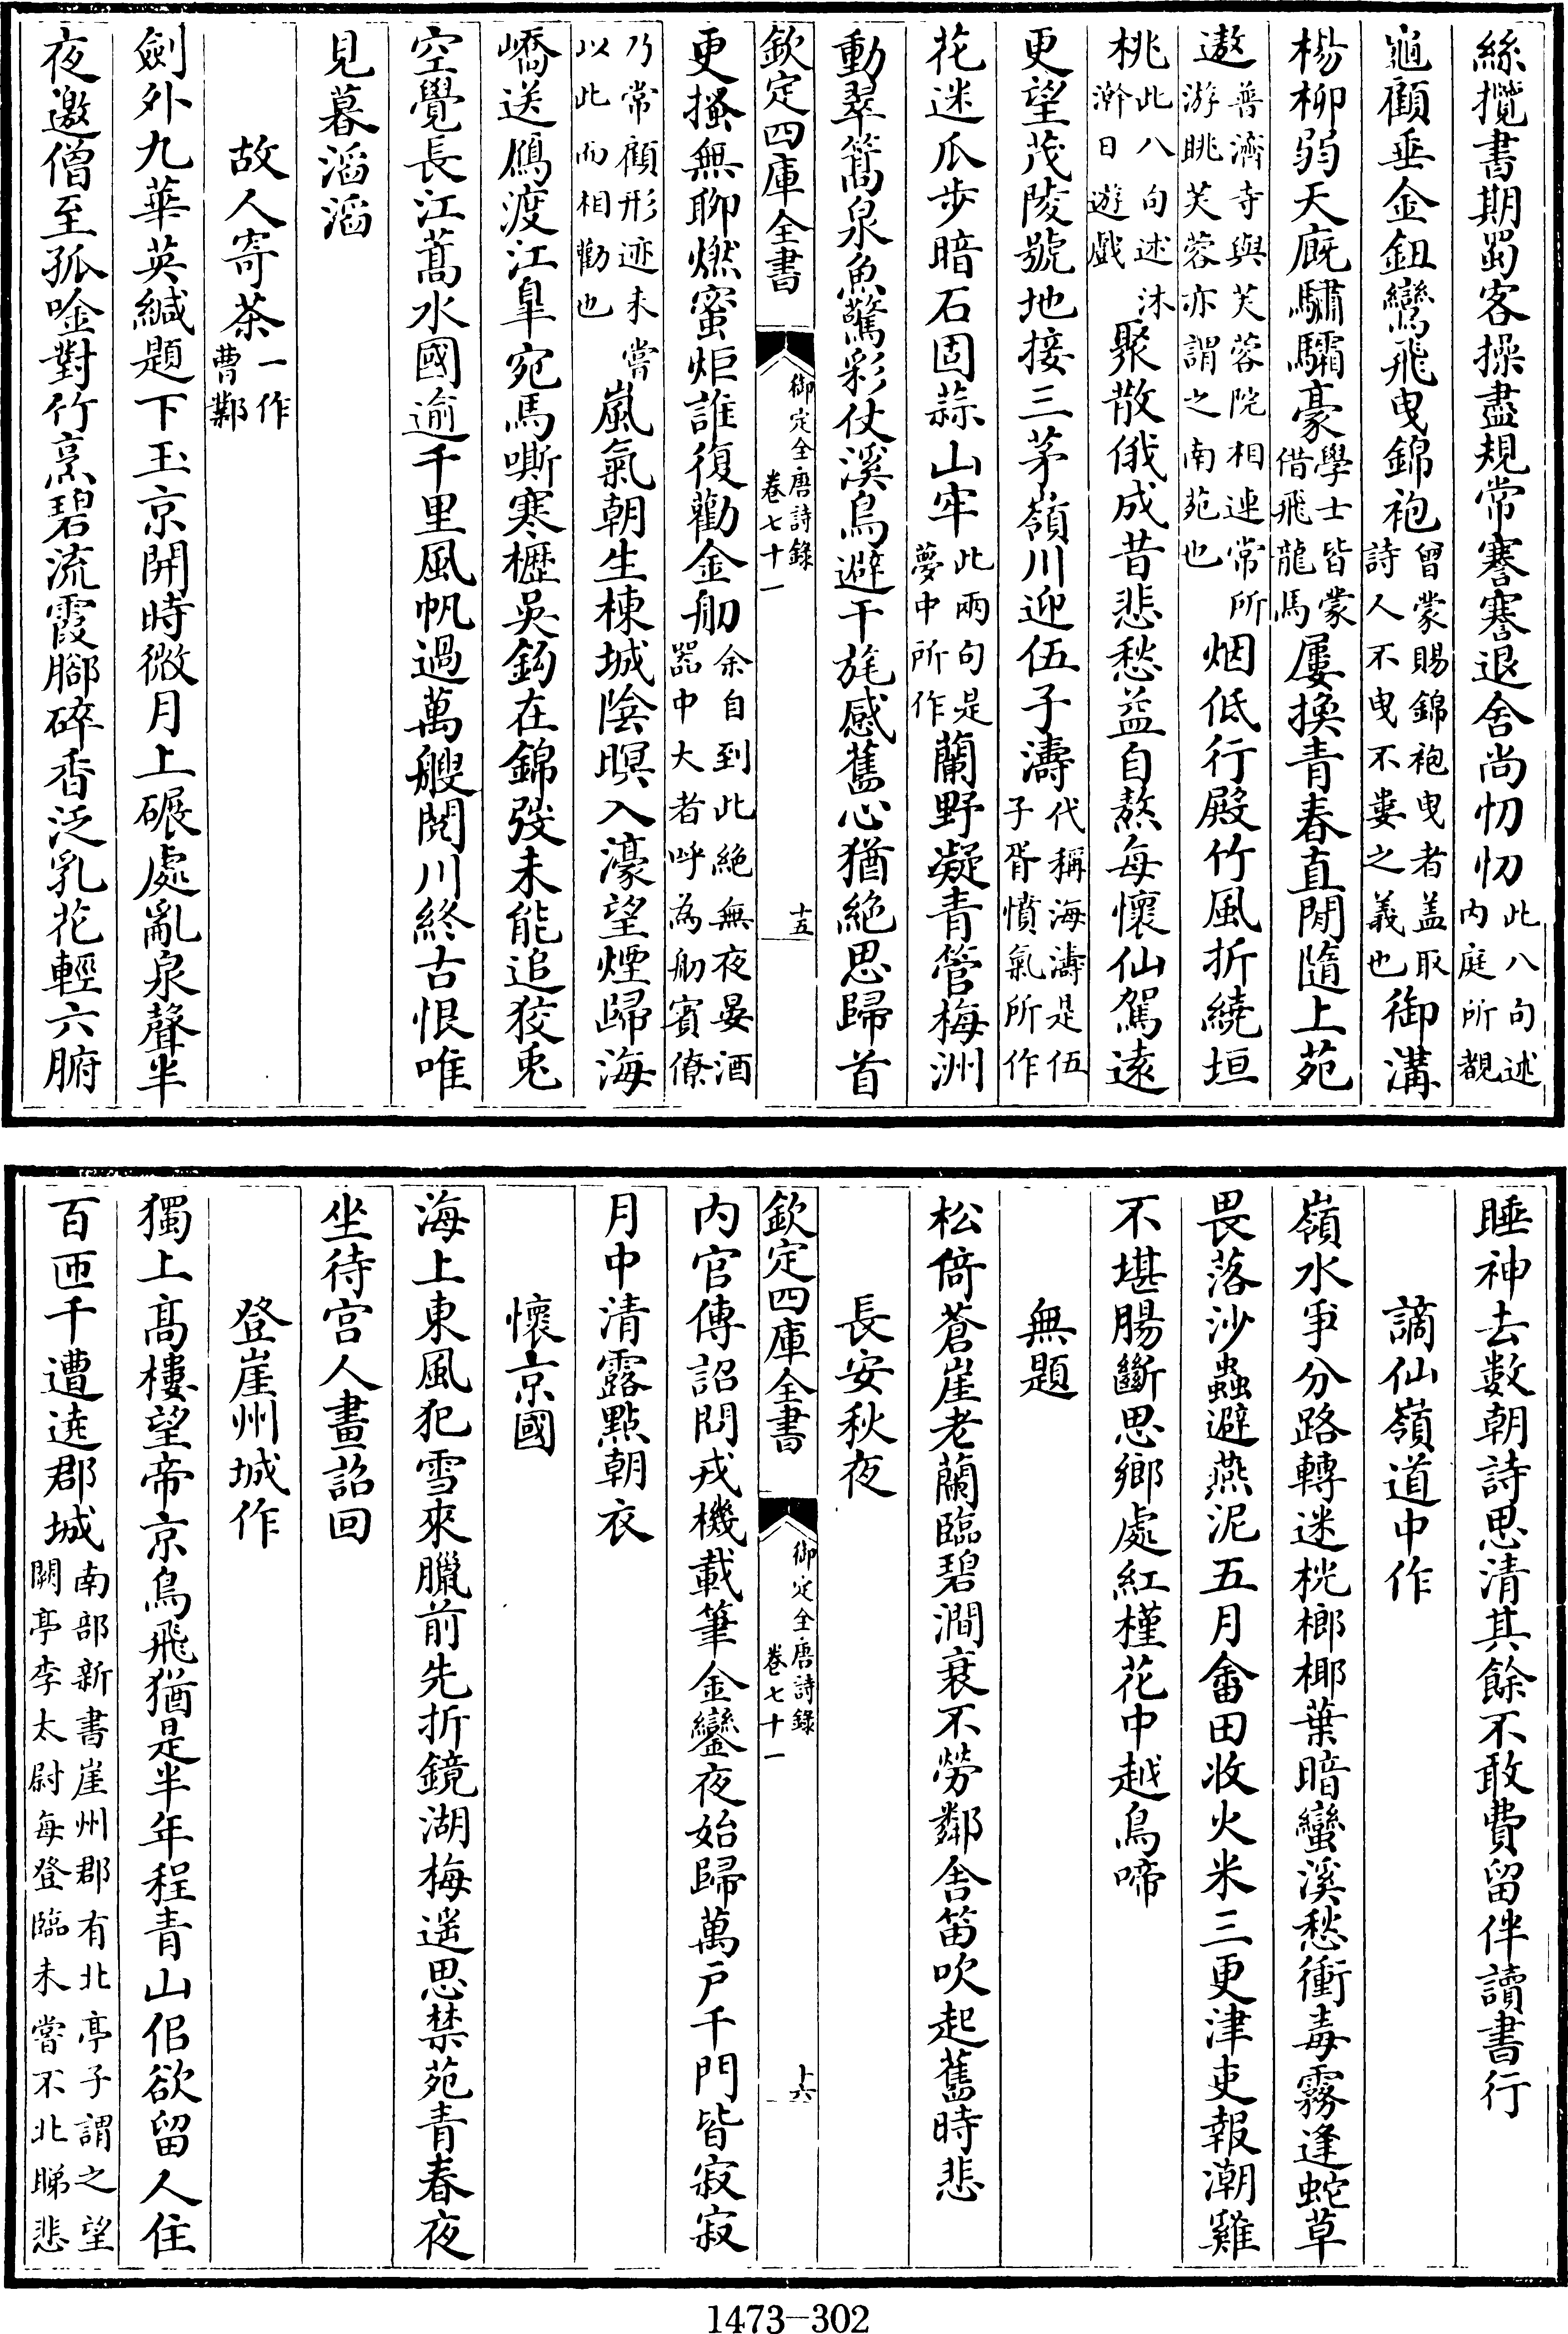 絲攬書期蜀客操盡規常謇謇退舍尚忉忉此八句述内庭所覩
龜顧垂金鈕鸞飛曳錦袍曾蒙賜錦袍曳者盖取詩人不曳不婁之義也御溝
楊柳弱天廐驌驦豪學士皆蒙借飛龍馬屢換青春直閒隨上苑
遨普濟寺與芙蓉院相連常所游眺芙蓉亦謂之南苑也烟低行殿竹風折繞垣
桃此八句述沐澣日遊戲聚散俄成昔悲愁益自熬每懷仙駕遠
更望茂陵號地接三茅嶺川迎伍子濤代稱海濤是伍子胥憤氣所作
花迷瓜步暗石固蒜山牢此兩句是夢中所作蘭野凝青管梅洲
動翠篙泉魚驚彩仗溪鳥避干旄感舊心猶絶思歸首
欽定四庫全書 御定全唐詩錄 卷七十一 十五
更搔無聊燃蜜炬誰復勸金舠余自到此絶無夜晏酒器中大者呼為舠賓僚
乃常顧形迹未嘗以此而相勸也嵐氣朝生棟城陰暝入濠望煙歸海
嶠送鴈渡江臯宛馬嘶寒櫪吳鉤在錦弢未能追狡兎
空覺長江蒿水國逾千里風帆過萬艘閱川終古恨唯
見暮滔滔
故人寄茶一作曹鄴
劍外九華英緘題下玉京開時微月上碾處亂泉聲半
夜邀僧至孤唫對竹烹碧流霞腳碎香泛乳花輕六腑
睡神去數朝詩思清其餘不敢費留伴讀書行
謫仙嶺道中作
嶺水爭分路轉迷桄榔椰葉暗蠻溪愁衝毒霧逢蛇草
畏落沙蟲避燕泥五月畬田收火米三更津吏報潮雞
不堪腸斷思鄉處紅槿花中越鳥啼
無題
松倚蒼崖老蘭臨碧澗衰不勞鄰舍笛吹起舊時悲
長安秋夜
欽定四庫全書 御定全唐詩錄 卷七十一 十六
内官傳詔問戎機載筆金鑾夜始歸萬户千門皆寂寂
月中清露點朝衣
懷京國
海上東風犯雪來臘前先折鏡湖梅遥思禁苑青春夜
坐待宫人畫詔回
登崖州城作
獨上髙樓望帝京鳥飛猶是半年程青山佀欲留人住
百匝千遭遶郡城南部新書崖州郡有北亭子謂之望闕亭李太尉每登臨未嘗不北睇悲
1473-302